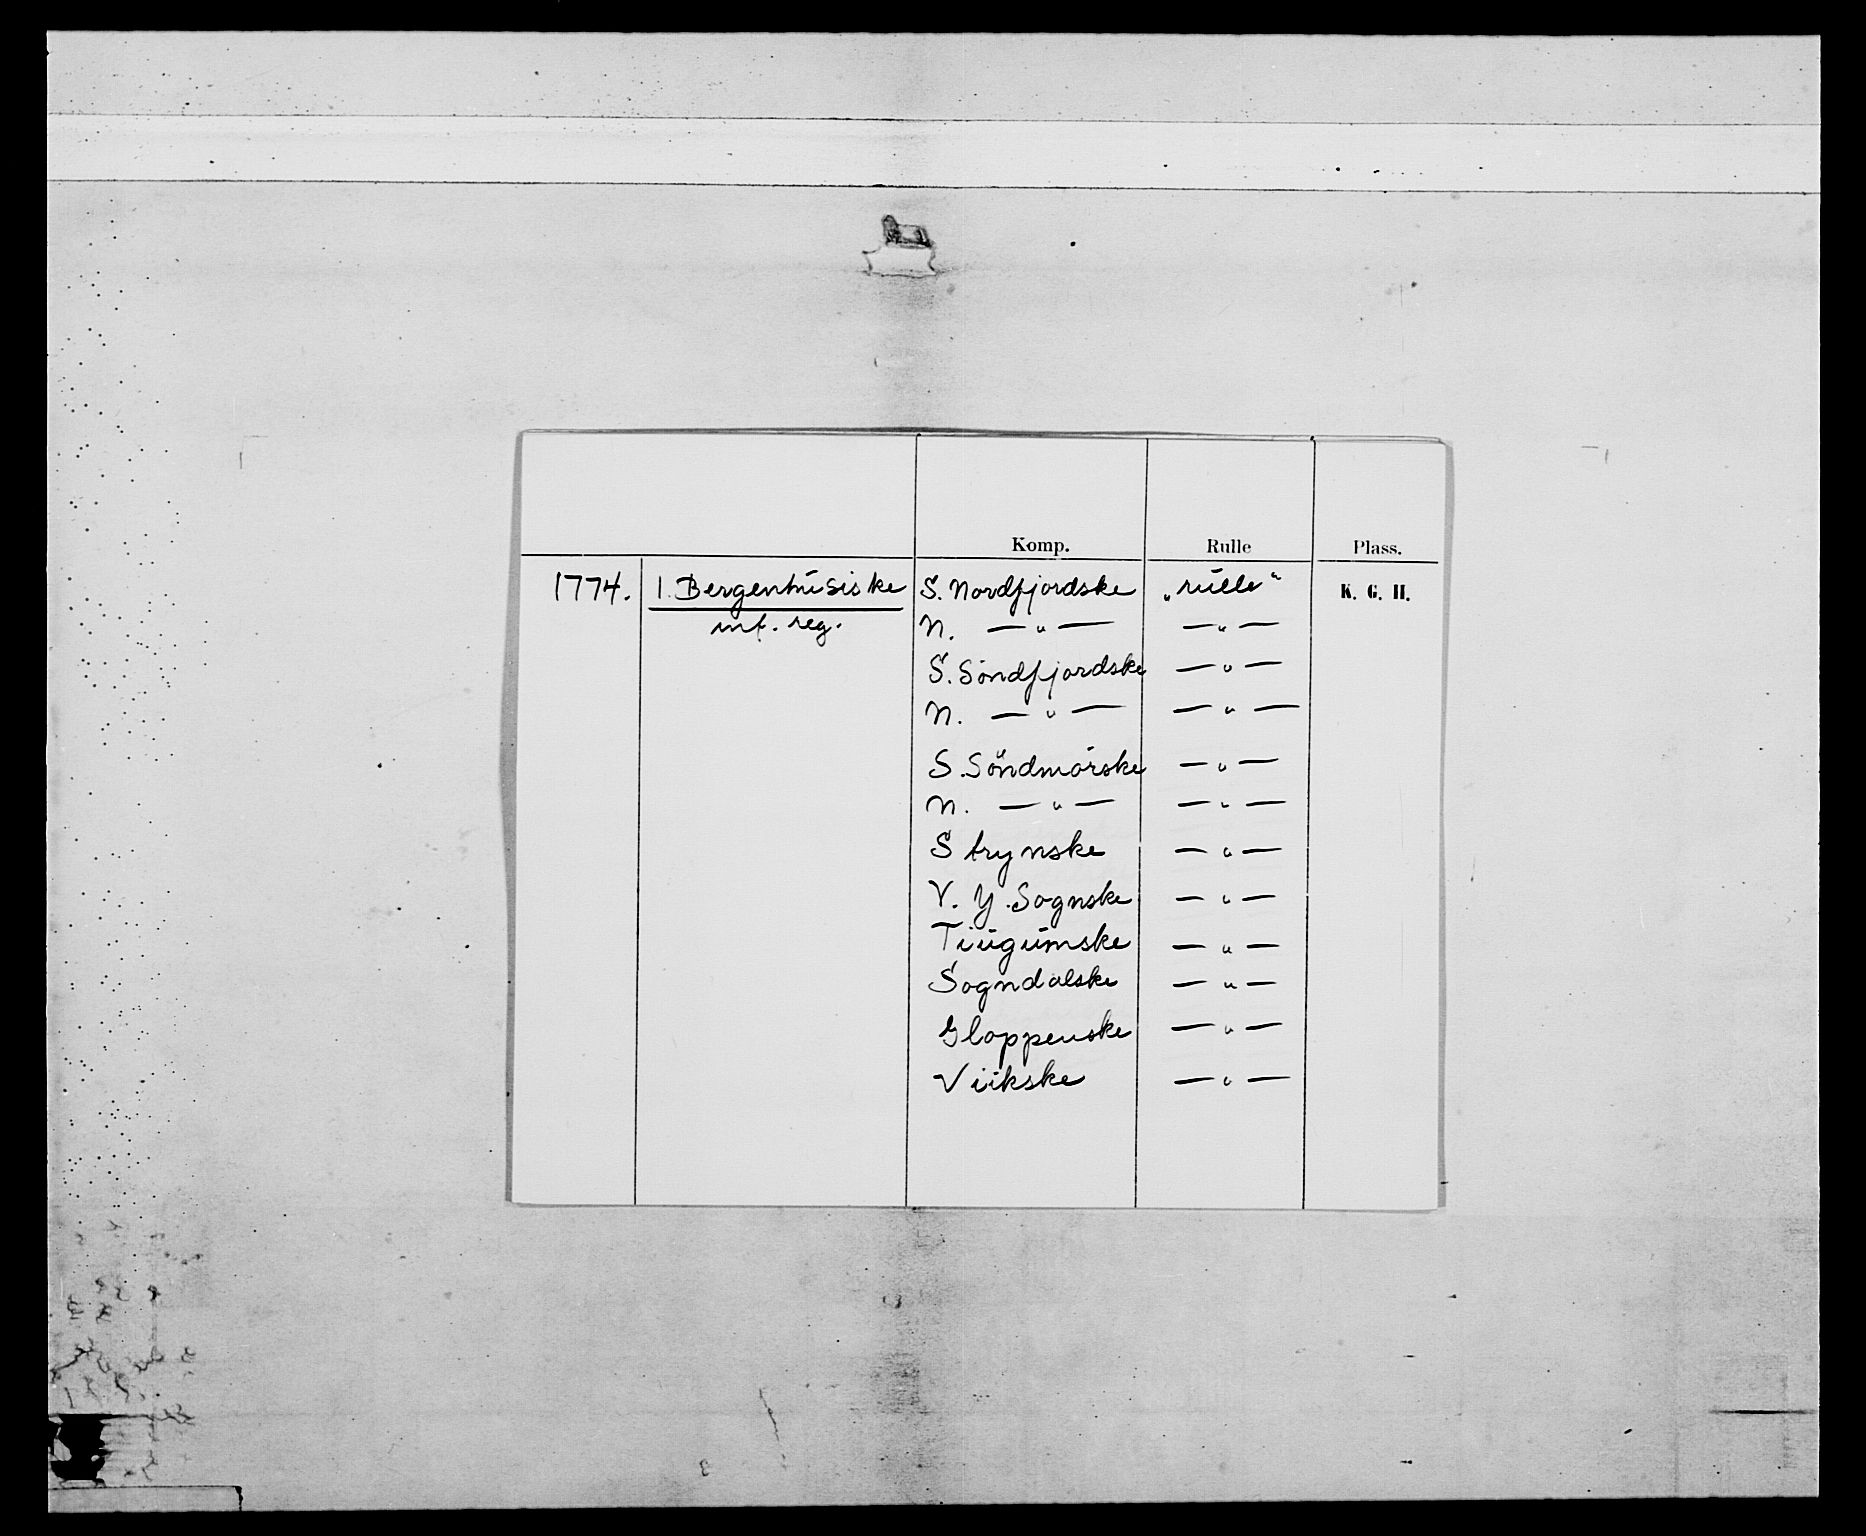 Komp. Rulle Plass.
1774. 1. Bergenhusiske S. Nordfjordske „rulle“ K. G. H.
inf. reg. N. — " — — " —
S. Söndfjordske — " —
N. — " — — " —
S. Söndmörske — " —
N. — " — — " —
Strynske — " —
V. Y. Sognske — " —
Tiugumske — " —
Sogndalske — " —
Gloppenske — " —
Viikske — " —